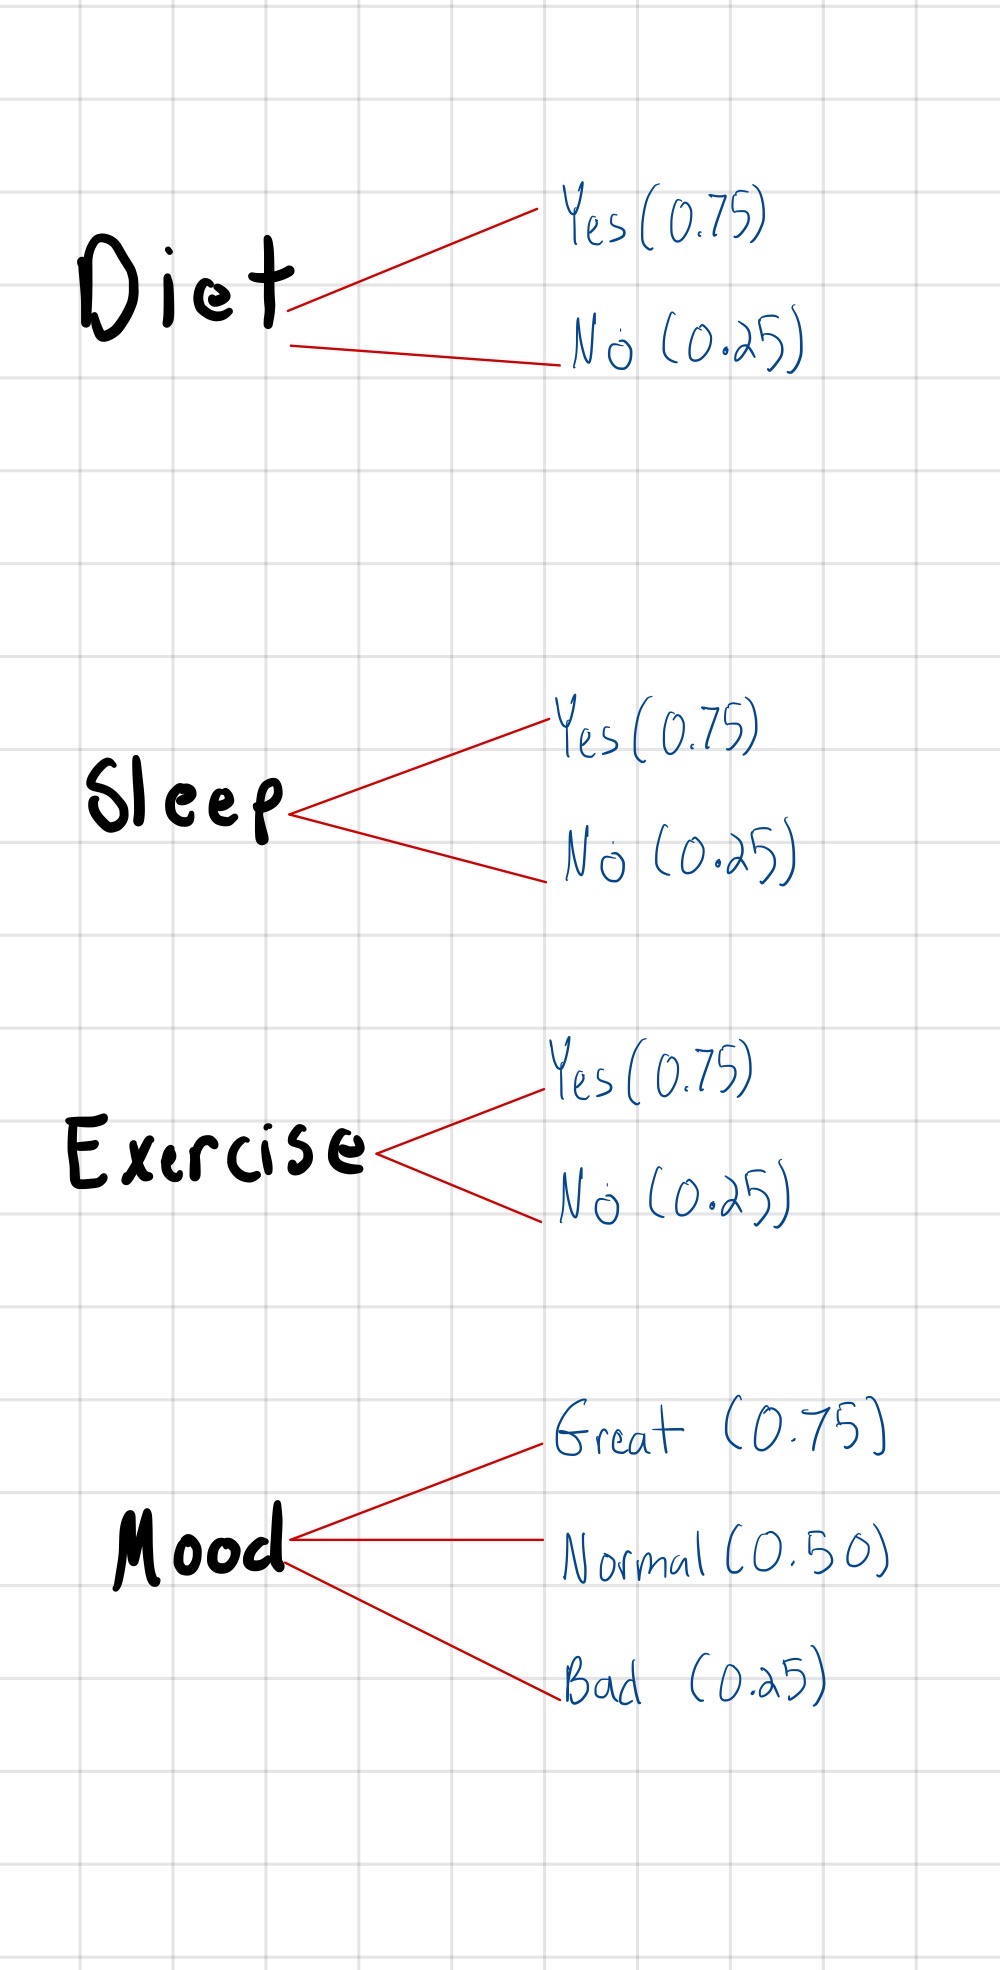 Diet
Yes (0.75)
No (0.25)
Sleep
Yes (0.75)
No (0.25)
Exercise
Yes (0.75)
No (0.25)
Mood
Great (0.75)
Normal (0.50)
Bad (0.25)